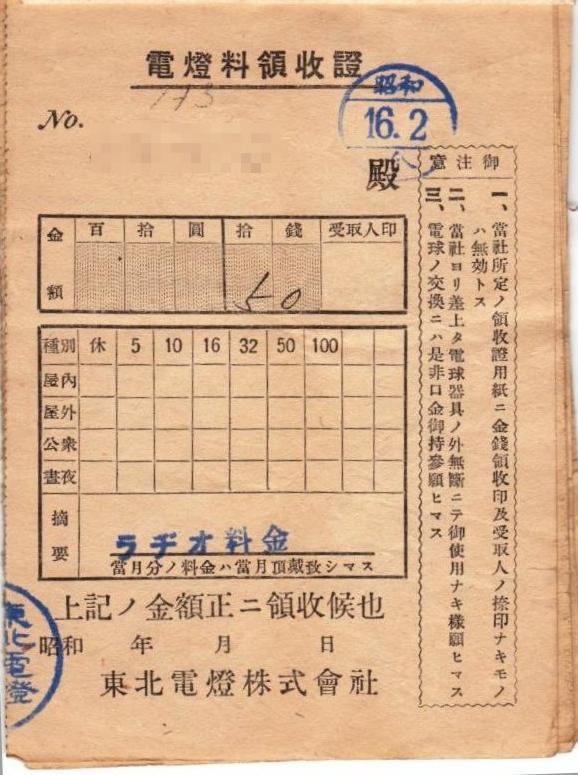 電燈料領收證
No. 173
昭和
16.2
殿
金額 百 拾 圓 拾 錢 受取人印
50
種別 休 5 10 16 32 50 100
屋內
屋外
公衆
晝夜
摘要
ラヂオ料金
當月分ノ料金ハ當月頂戴致シマス
上記ノ金額正ニ領收候也
昭和 年 月 日
東北電燈株式會社
東北電燈
御注意
一、當社所定ノ領收證用紙ニ金錢領收印及受取人ノ捺印ナキモノ
ハ無効トス
二、當社ヨリ差上タ電球器具ノ外無斷ニテ御使用ナキ樣願ヒマス
三、電球ノ交換ニハ是非口金御持參願ヒマス